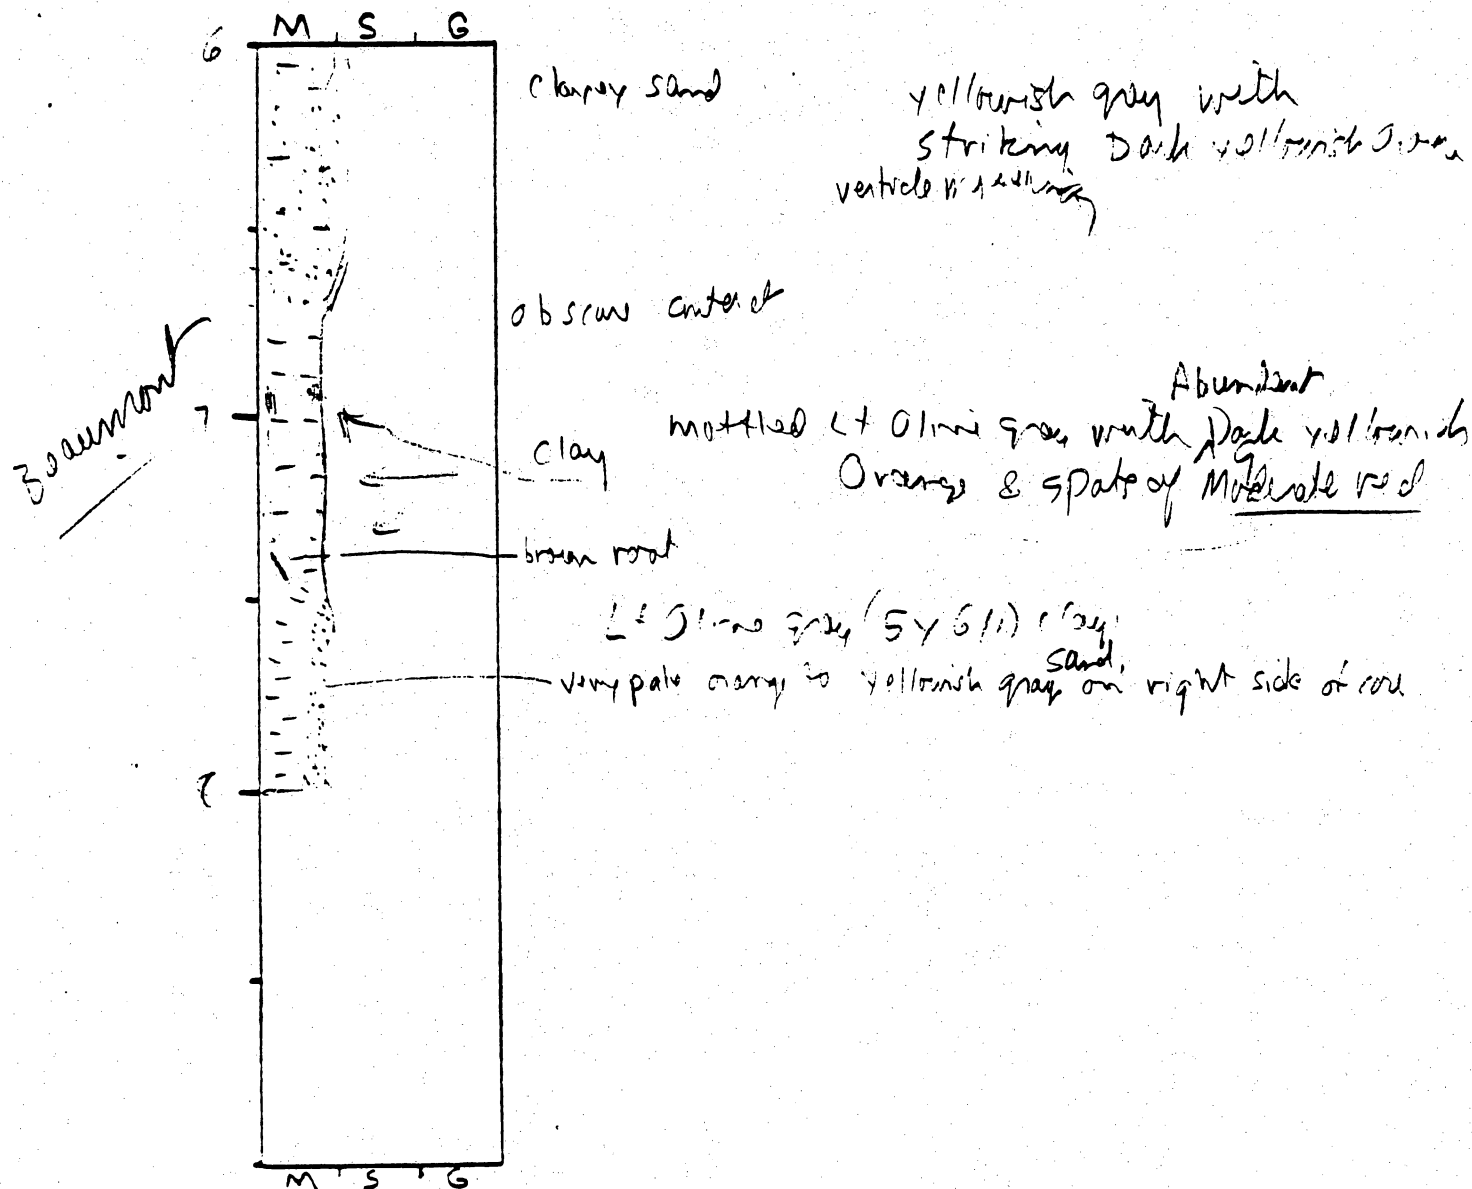 M S G
6
clayey sand
yellowish gray with
striking Dark yellowish Orange
verticle
obscure contact
Beaumont
Abundant
7
mottled Lt Olive gray with Dark yellowish
clay
Orange & spots of Moderate red
brown root
Lt Olive gray (5Y6/1) clay
sand,
very pale orange to yellowish gray on right side of core
8
M S G